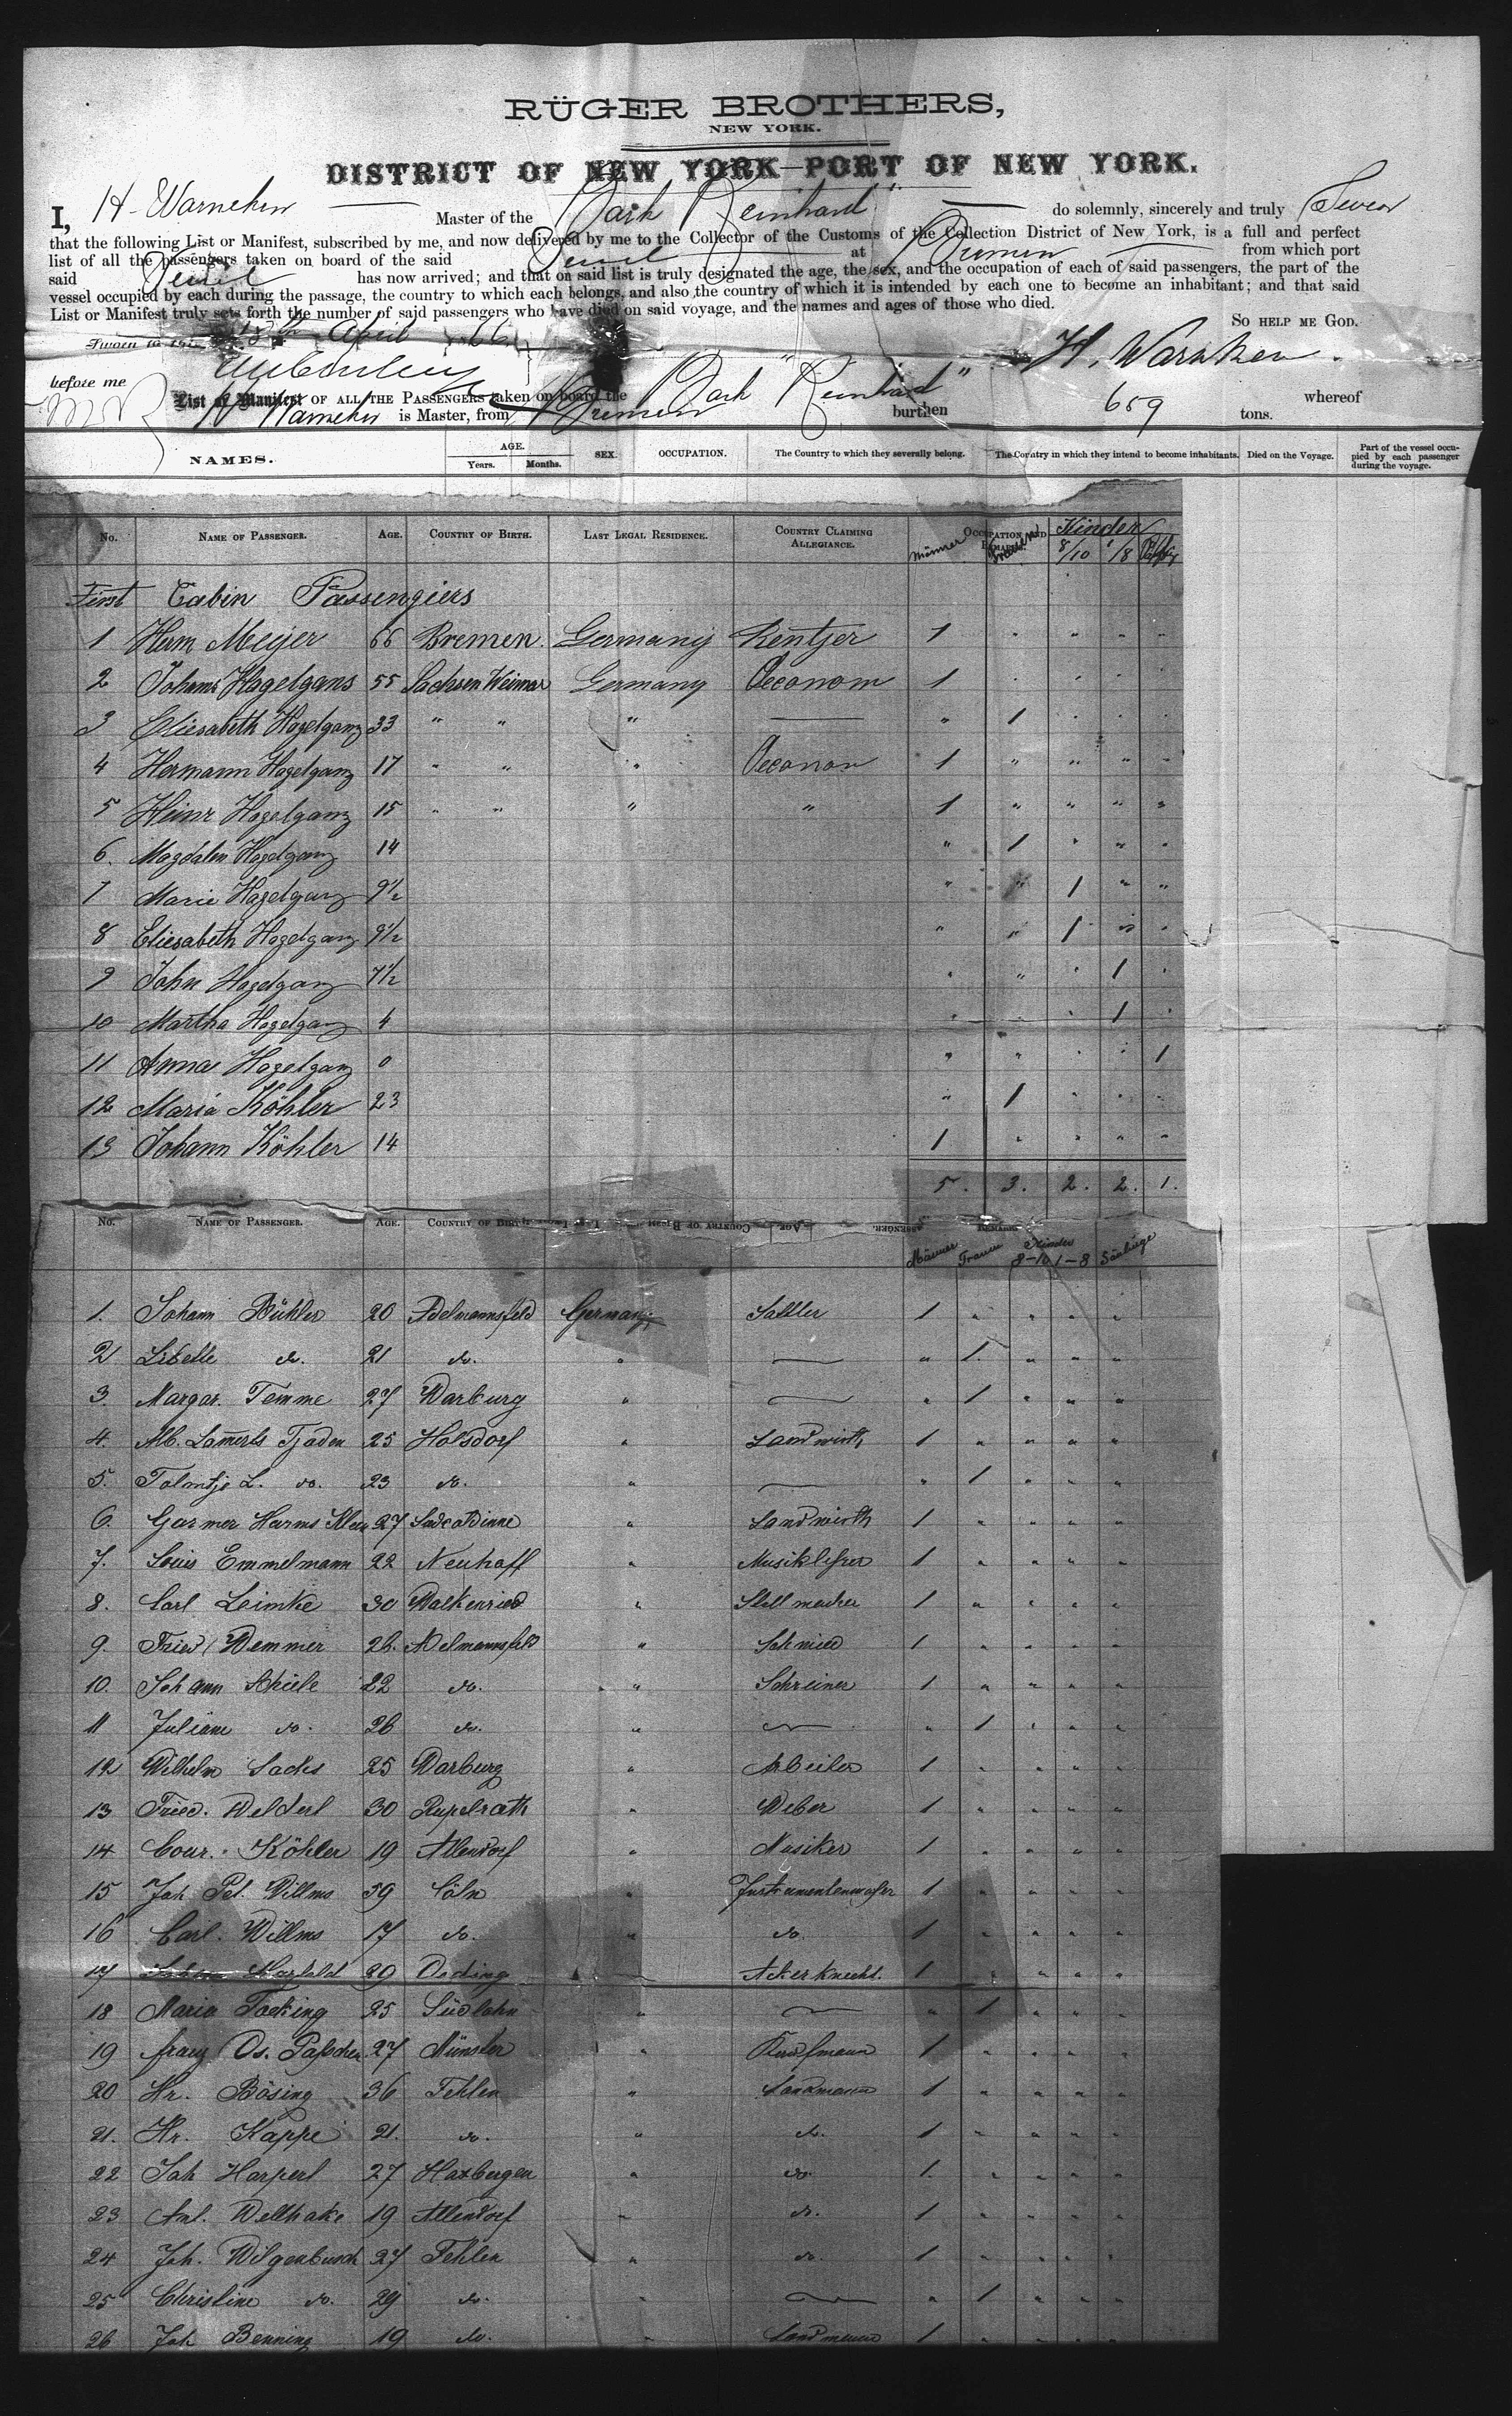 RÜGER BROTHERS,
NEW YORK.
DISTRICT OF NEW YORK—PORT OF NEW YORK.
I, H. Warneken Master of the Bark "Reinhard" do solemnly, sincerely and truly Swear
that the following List or Manifest, subscribed by me, and now delivered by me to the Collector of the Customs of the Collection District of New York, is a full and perfect
list of all the passengers taken on board of the said at Bremen from which port
said has now arrived; and that on said list is truly designated the age, the sex, and the occupation of each of said passengers, the part of the
vessel occupied by each during the passage, the country to which each belongs, and also the country of which it is intended by each one to become an inhabitant; and that said
List or Manifest truly sets forth the number of said passengers who have died on said voyage, and the names and ages of those who died.
SO HELP ME GOD.
Sworn to this 18th April 1866
H. Warneken.
before me
List or Manifest OF ALL THE PASSENGERS taken on board the Bark "Reinhard" whereof
H. Warneken is Master, from Bremen burthen 659 tons.
NAMES. AGE. Years. Months. SEX. OCCUPATION. The Country to which they severally belong. The Country in which they intend to become inhabitants. Died on the Voyage. Part of the vessel occupied by each passenger during the voyage.
No. NAME OF PASSENGER. AGE. COUNTRY OF BIRTH. LAST LEGAL RESIDENCE. COUNTRY CLAIMING ALLEGIANCE. OCCUPATION AND REMARKS. Männer Frauen Kinder 8/10 1/8
First Cabin Passengiers
1 Herm Meyer 66 Bremen. Germany Rentjer 1 " " " "
2 Johann Hagelgans 55 Sachsen Weimar Germany Oeconom 1 " " " "
3 Eliesabeth Hagelganz 33 " " " — " 1 " " "
4 Hermann Hagelganz 17 " " " Oeconom 1 " " " "
5 Heinr Hagelganz 15 " " " " 1 " " " "
6. Magdalen Hagelganz 14 " 1 " " "
7 Marie Hagelganz 9½ " " 1 " "
8 Eliesabeth Hagelganz 9½ " " 1 " "
9 John Hagelganz 7½ " " " 1 "
10 Martha Hagelganz 4 " " " 1 "
11 Anna Hagelganz 0 " " " " 1
12 Maria Köhler 23 " 1 " " "
13 Johann Köhler 14 1 " " " "
5. 3. 2. 2. 1.
No. NAME OF PASSENGER. AGE. COUNTRY OF BIRTH Männer Frauen Kinder 8–10 1–8 Säuglinge
1. Johann Bühler 20 Adelmannsfeld Germany Sattler 1 " " " "
2 do. 21 do. " — " 1. " " "
3. Margar. Temme 27 Warburg " — " 1 " " "
4. Alb. Lam̄erts Tjaden 25 Holsdorf " Landwirth 1 " " " "
5. L. do. 23 do. " — " 1 " " "
6. Garmer Harms 27 " Landwirth 1 " " " "
7. Louis Emmelmann 22 Neuhoff " Musiklehrer 1 " " " "
8. Carl Leimke 30 Walkenried " Stellmacher 1 " " " "
9. Fried. Wemmer 26. Adelmannsfeld " Schmied 1 " " " "
10. Johann Thiele 22 do. " Schreiner 1 " " " "
11 Juliane do. 26 do. " — " 1 " " "
12 Wilhelm Sachs 25 Warburg " Arbeiter 1 " " " "
13 Fried. 30 Rupelrath " Weber 1 " " " "
14 Conr. Köhler 19 Allendorf " Musiker 1 " " " "
15 Joh Pet. Willms 39 Cöln " Instrumentenmacher 1 " " " "
16 Carl Willms 17 do. " do. 1 " " " "
17 29 Oeding Ackerknecht. 1 " " " "
18 Maria Tocking 25 Südlohn " — " 1 " " "
19 Franz Os. Paschen 27 Münster " Kaufmann 1 " " " "
20 Hr. Bösing 36 " Landmann 1 " " " "
21. Hr. Kappe 21. do. " do. 1 " " " "
22 Joh Harperl 27 Haxbergen " do. 1. " " " "
23 Ant. Wellhake 19 Allendorf " do. 1 " " " "
24 Joh. Wilgenbusch 27 " do. 1 " " " "
25 Christine do. 29 do. " — " 1 " " "
26 Joh Benning 19 do. " Landmann 1 " " " "